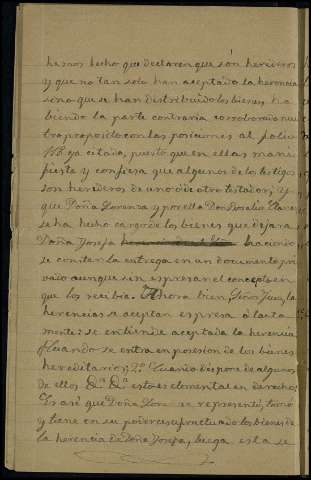 hemos hecho que declaren que són herederos
y que no tan solo han aceptado la herencia
sino que se han distribuido los bienes, ha
biendo la parte contraria corroborado nu
tro proposito con las posiciones al folio
ya citada, puesto que en ellas mani
fiesta y confiesa que algunos de los testigos
son herederos de uno ó de otro testador; y
que Doña Lorenza y por ella Don Rosalio
se ha hecho cargo de los bienes que dejara
Doña Josefa haciendo
se constar la entrega en un documento pri
vado aunque sin espresar el concepto en
que los recibia. Ahora bien Señor Juez, la
herencia se aceptan espresa ó táctita
mente: se entiende aceptada la herencia
cuando se entra en posesion de los bienes
hereditarios; 2º Cuando dispone de algunos
de ellos &ª &ª esto es elemental en derecho;
Es así que Doña se representó, tomó
y tiene en su poder usufructuado los bienes de
la herencia de Doña Josefa, luego esta se